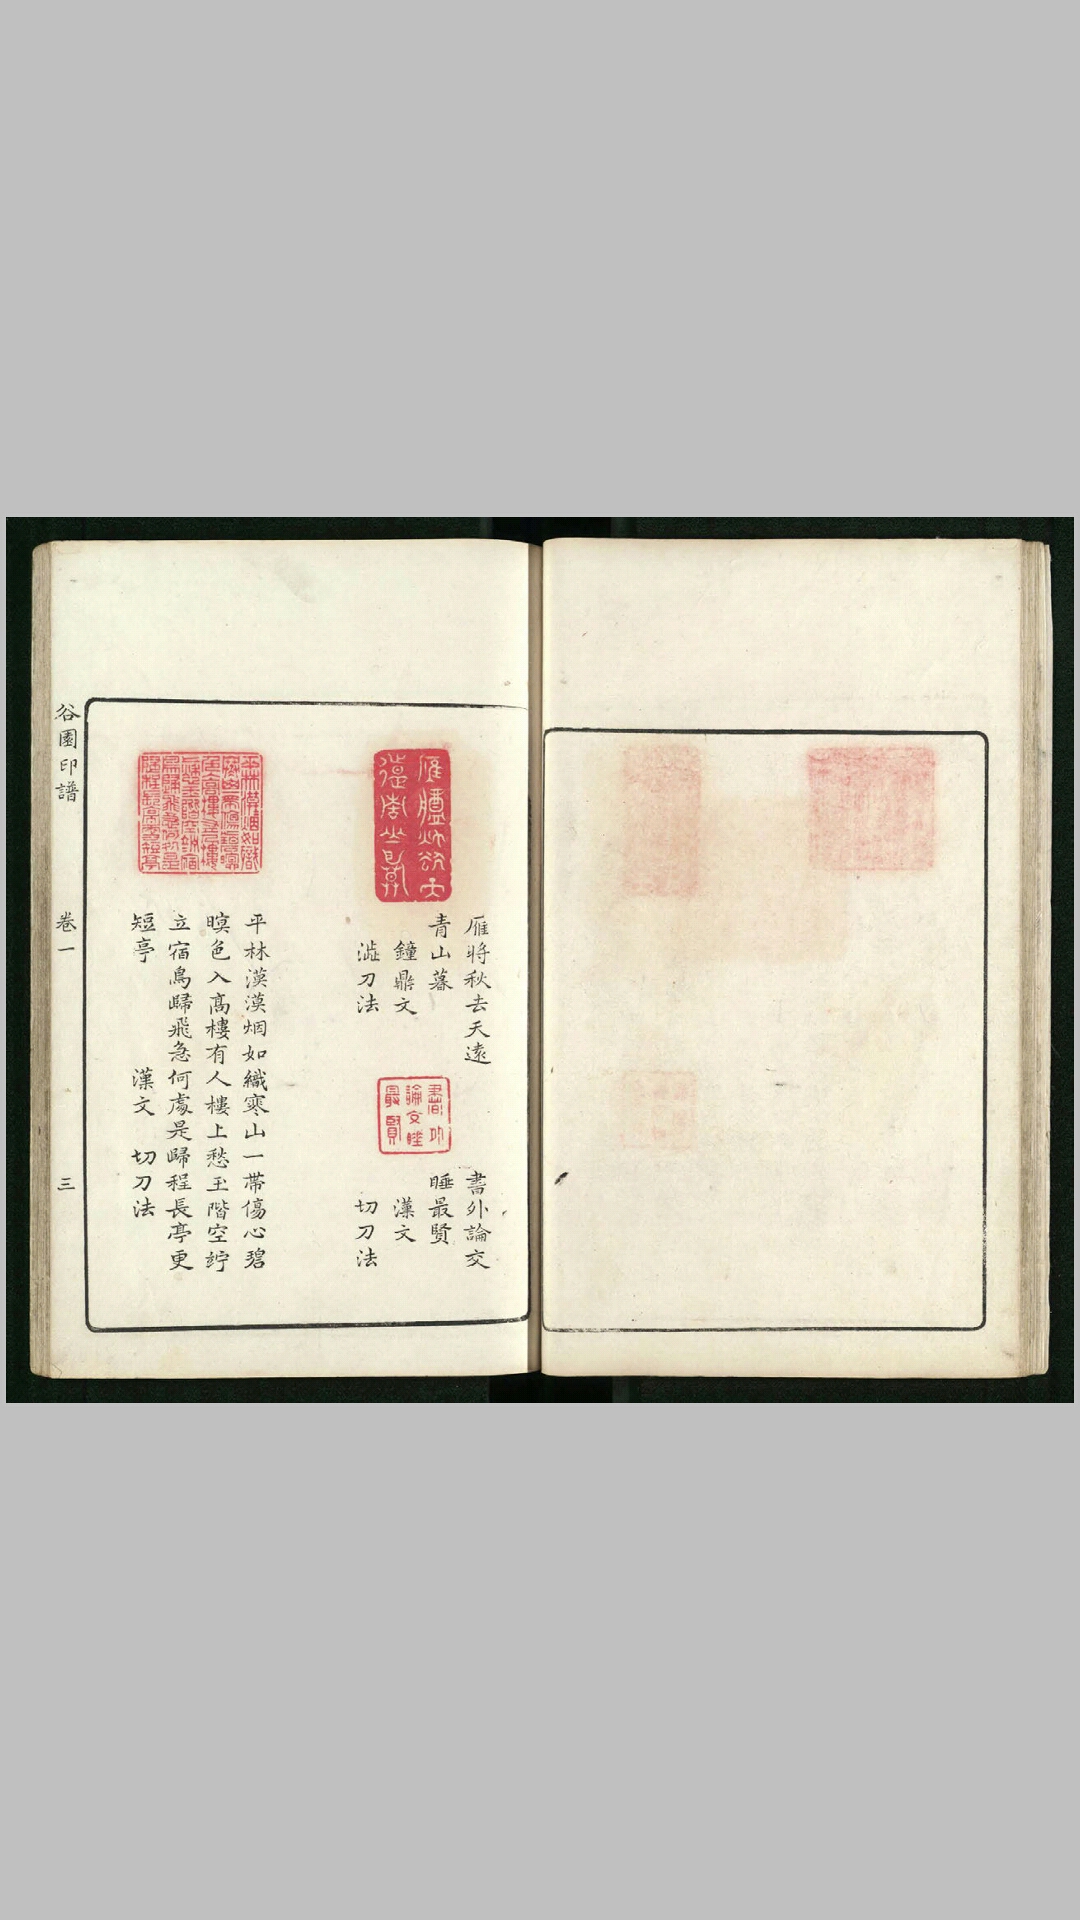 雁將秋去天遠
青山暮
鐘鼎文
澁刀法
書外論交
睡最賢
漢文
切刀法
平林漠漠烟如織寒山一帶傷心碧
暝色入高樓有人樓上愁玉階空竚
立宿鳥歸飛急何處是歸程長亭更
短亭
漢文 切刀法
谷園印譜
卷一
三